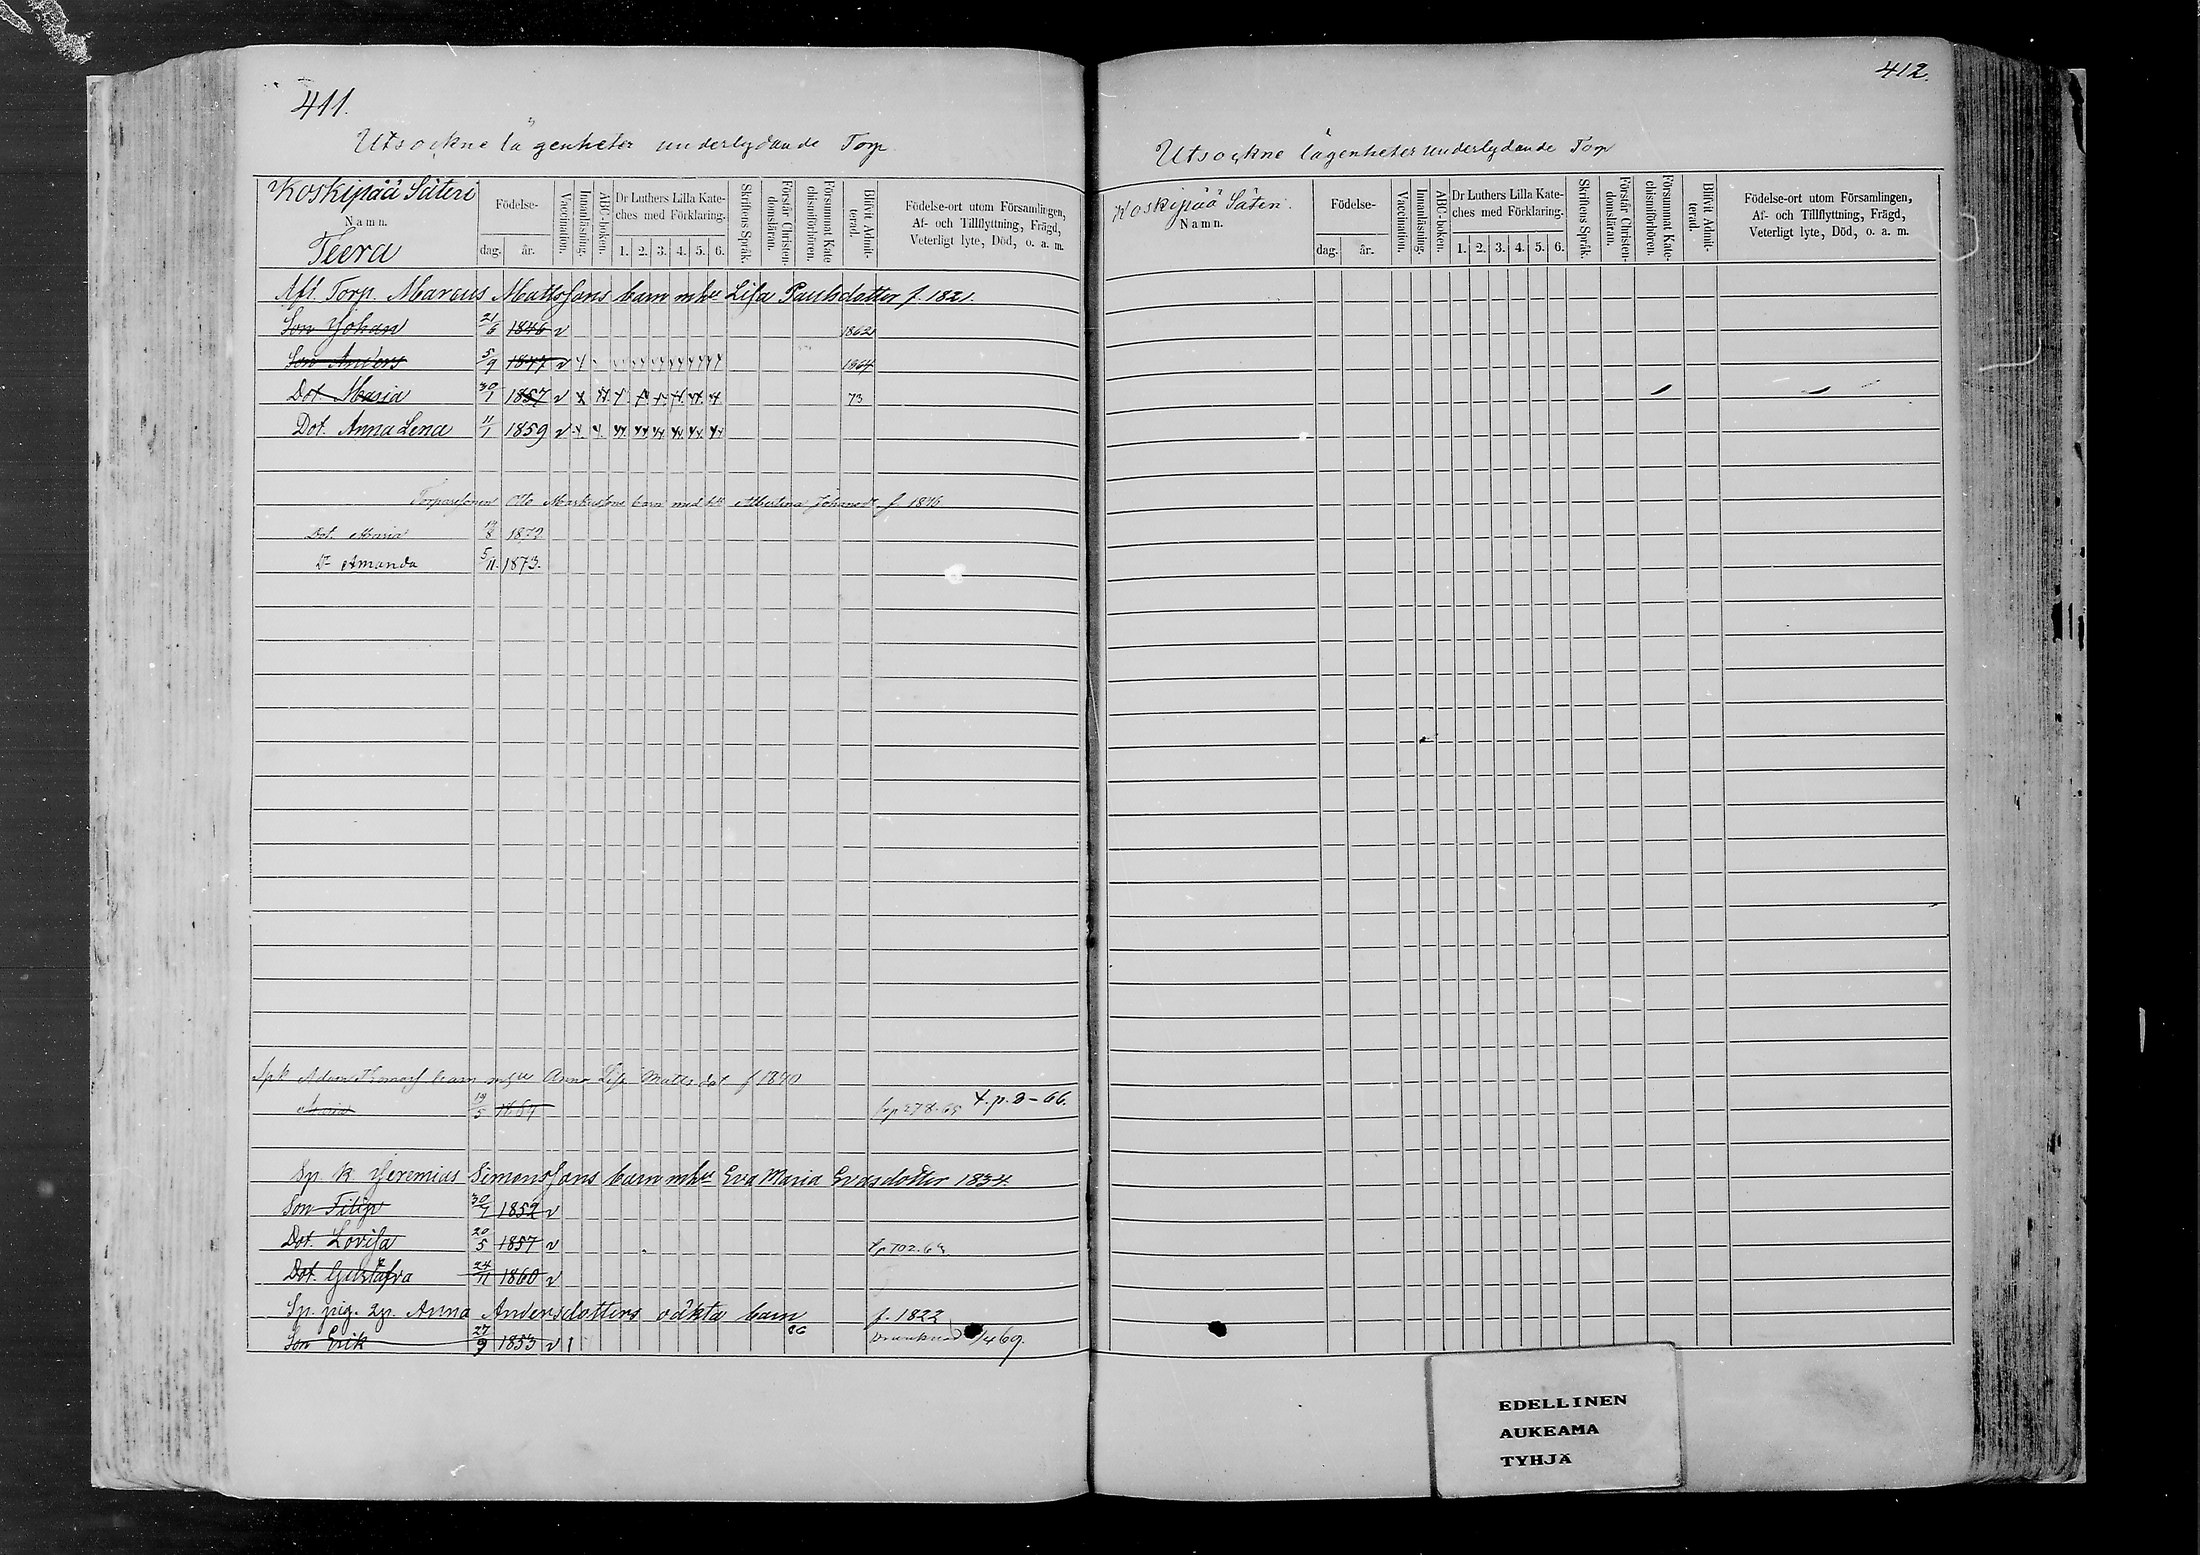 411.
Utsockne lägenheter underlydande Torp.
Koskipää Säteri
Namn.
Teera
Födelse-
dag. år.
Vaccination.
Innanläsning.
ABC-boken.
Dr Luthers Lilla Kate-
ches med Förklaring.
1. 2. 3. 4. 5. 6.
Skriftens Språk.
Förstår Christen-
domsläran.
Försummat Kate
chismiförhören.
Blifvit Admit-
terad.
Födelse-ort utom Församlingen,
Af- och Tillflyttning, Frägd,
Veterligt lyte, Död, o. a. m.
Afl. Torp. Marcus Mattssons barn mhu Lisa Paulsdotter f. 1821.
Son Johan 21/6 1846 v 1862
Son Anders 5/9 1847 v 1864
Dot. Maria 30/1 1857 v 73
Dot. Anna Lena 11/1 1859 v
Torparesonen Otto Markussons barn med hu Albertina Johansdr f. 1846
Dot. Maria 1872
Dr Amanda 5/11. 1873.
Spk Adam Thomass barn mhu Anna Lisa Mattsdot f 1840
Maria 19/5 4. p. 3-66.
Sp. k. Jeremias Simonssons barn mhu Eva Maria Evasdotter 1834
Son Filip 30/7 1852 v
Dot. Lovisa 20/5 1857 v
Dot. Gustafva 24/11 1860 v
Sp. pig. Anna Andersdotters oäkta barn f. 1822
Son Erik 27/9 1853 v
412.
Utsockne lägenheter underlydande Torp
Koskipää Säteri.
Namn.
Födelse-
dag. år.
Vaccination.
Innanläsning.
ABC-boken.
Dr Luthers Lilla Kate-
ches med Förklaring.
1. 2. 3. 4. 5. 6.
Skriftens Språk.
Förstår Christen-
domsläran.
Försummat Kate-
chismiförhören.
Blifvit Admit-
terad.
Födelse-ort utom Församlingen,
Af- och Tillflyttning, Frägd,
Veterligt lyte, Död, o. a. m.
EDELLINEN
AUKEAMA
TYHJÄ